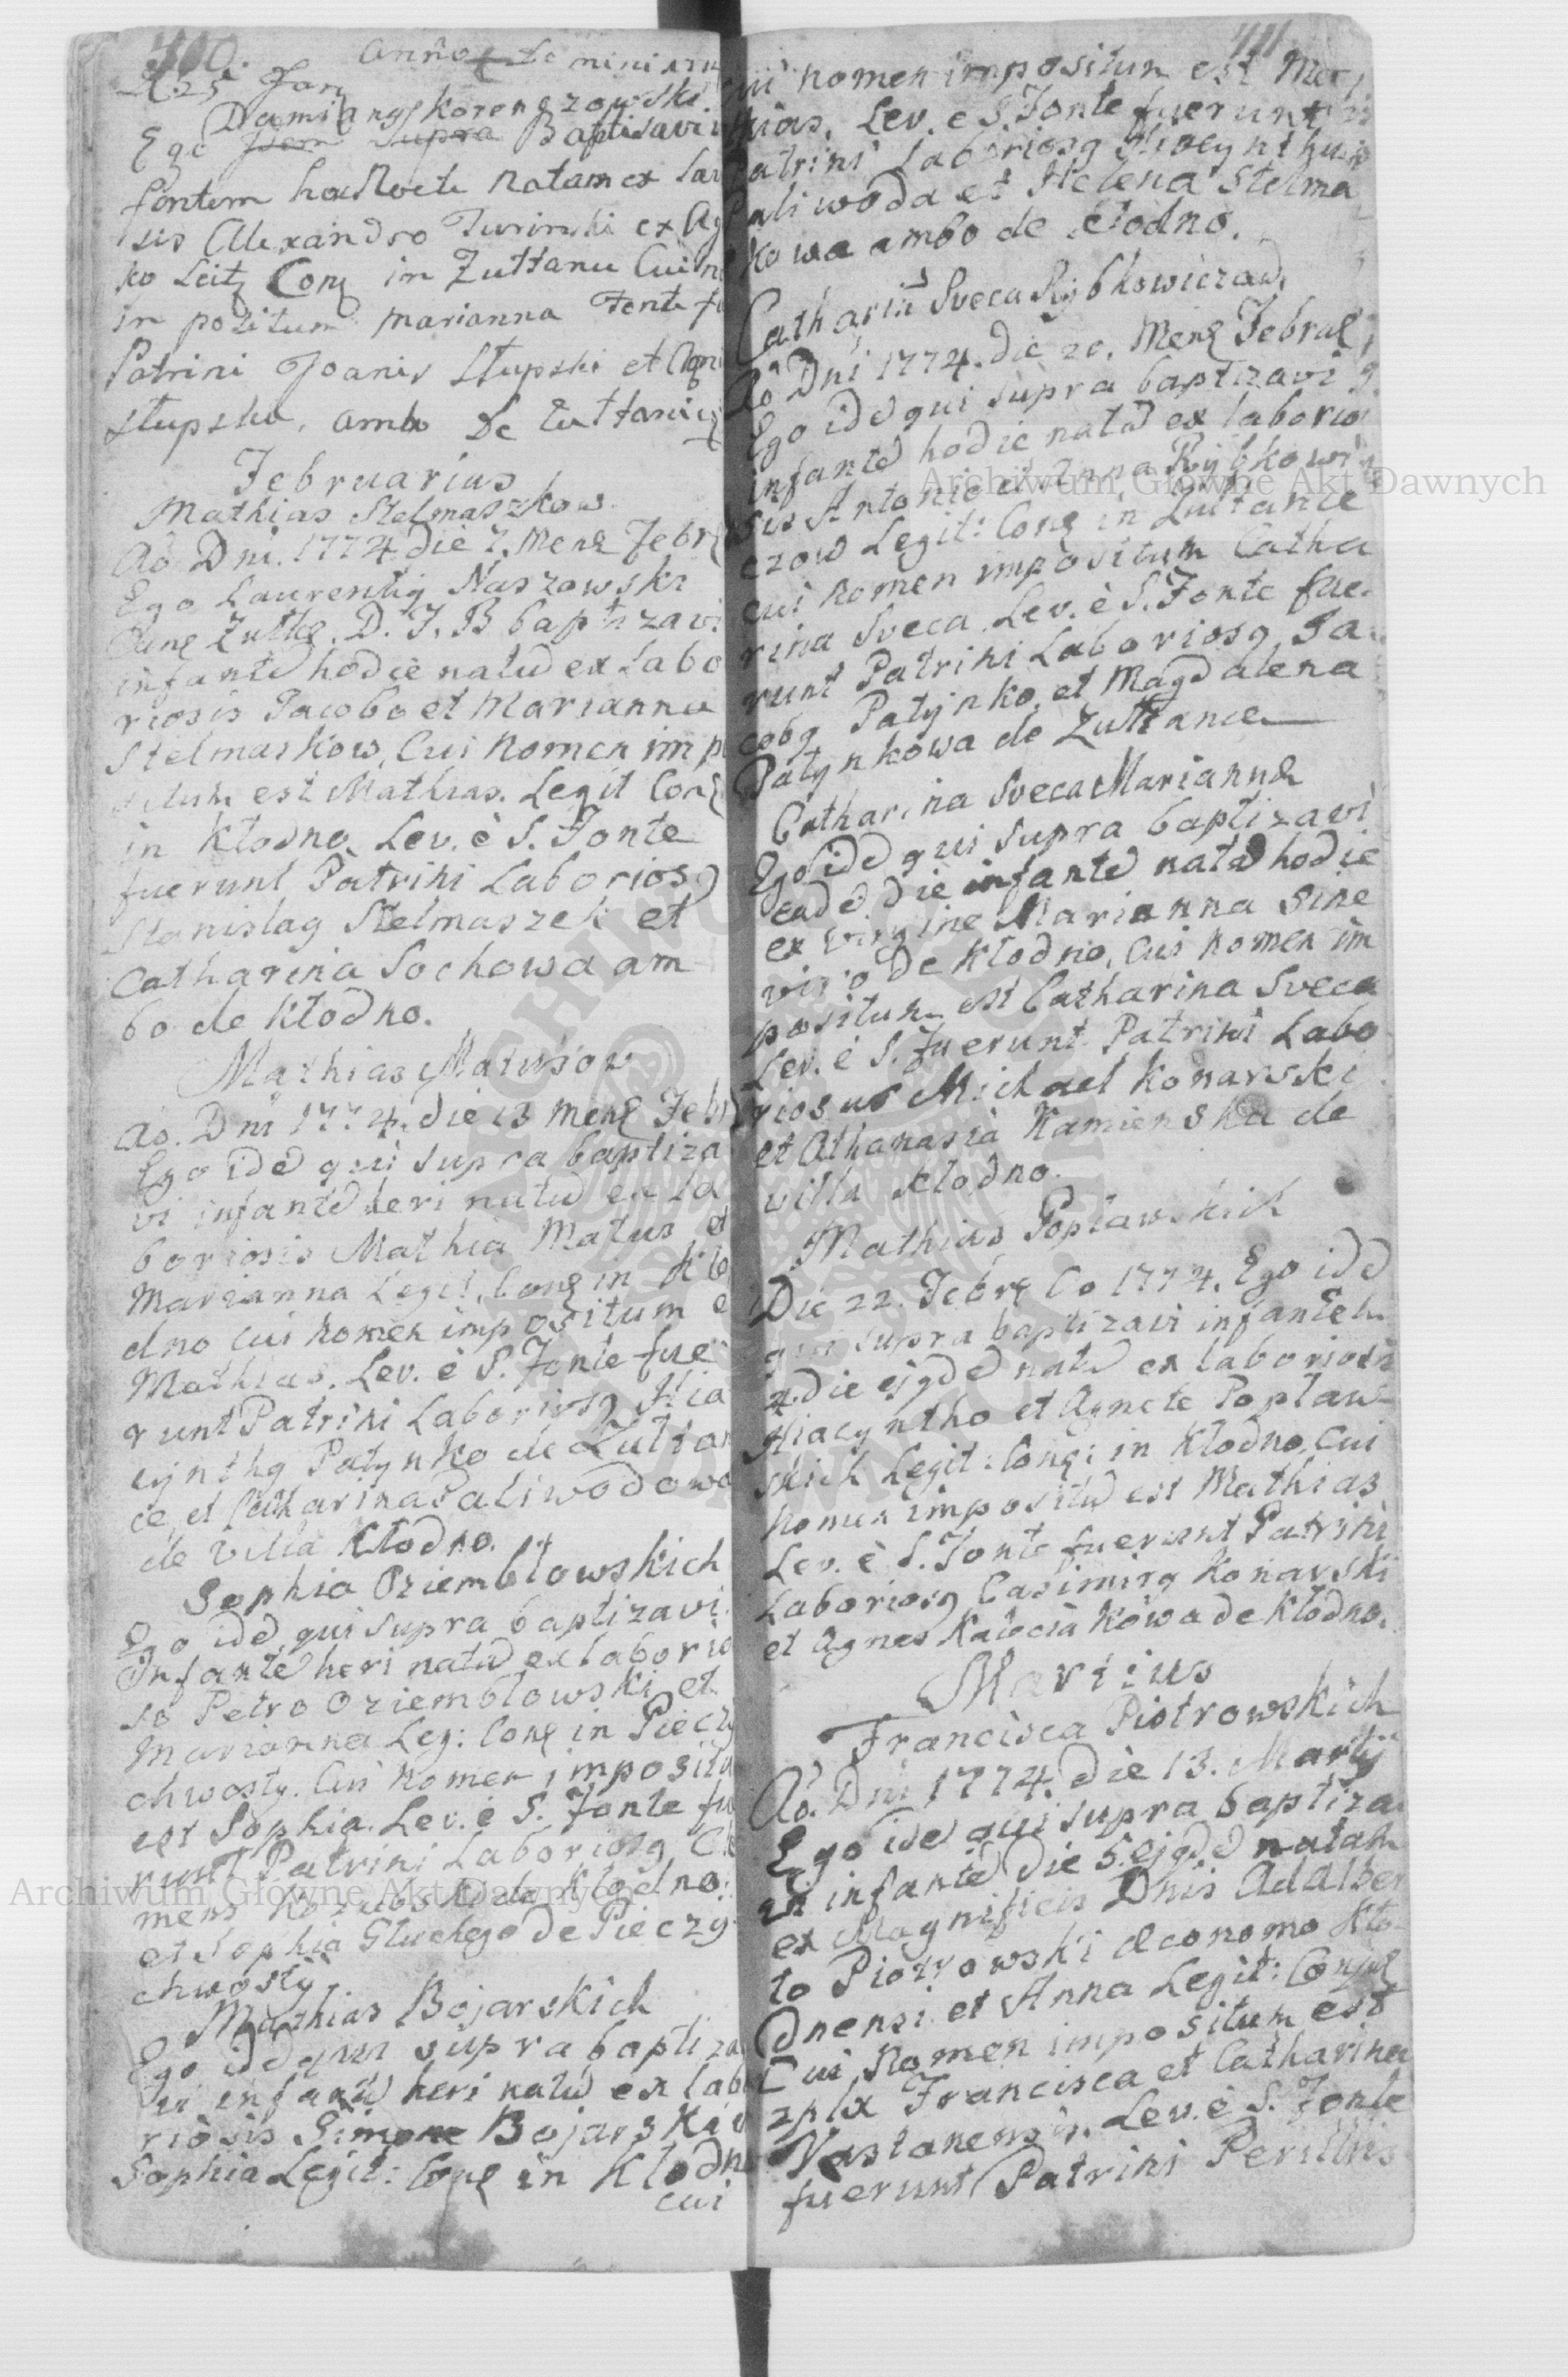 400.
Anno Domini
d. 25 Jan
Damiang Korenszowski
Ego Idem Supra Baptisavi in
fantem hac Nocte Natam ex Lab
sis Alexandro Turinski ex Ag
Leitz Conz in Zułtanu Cui n
in pozitum Marianna Fonte fu
Patrini Joanis Słupski et Agn
Słupska, amb De Zułtanice
Februarius
Mathias Stelmaszkow.
Ao Dni. 1774 die 7. Mens Febr
Ego Laurentig Naszowski
Zułtc. D. J. B baptizavi
infante hodie natu ex Labo
riosis Jacobo et Marianna
Stelmaskow, Cui Nomen imp
situm est Mathias. Legit Conz
in Kłodno. Lev. è S. Fonte
fuerunt Patrini Laboriosg
Stanislag Stelmaszek et
Catharina Sochowa am
bo de Kłodno.
Mathias Matusow
Ao. Dni 1774. die 13 Mens Febr
Ego ide qui supra baptiza
vi infante heri natu ex La
boriosis Mathia Matus et
Marianna Legit. Conz in Kło
dno cui nomen impositum e
Mathias. Lev. è S. Fonte fue
runt Patrini Laboriosg Hia
cynthg Patynko de Zułtan
ce, et Catharina Paliwodowa
de Villa Kłodno.
Sophia Oziembłowskich
Ego ide qui supra baptizavi
Infante heri natu ex laborio
so Petro Oziembłowski et
Marianna Leg: Conz in Pieczy
chwosty. Cui Nomen imposita
est Sophia. Lev. è S. Fonte fu
runt Patrini Laboriosg Cle
mens Kozubski de Kłodno:
et Sophia Głuchego de Pieczy
chwosty.
Mathias Bojarskich
Ego ide qui supra baptiza
vi infante heri natu ex labo
riosis Simone Bojarski
Sophia Legit: Conz in Kłodn
cui
411
cui nomen impositum est Mat
hias. Lev. è S. Fonte fuerunt
Patrini Laboriosg Hiacynthus
Paliwoda et Helena Stelma
kowa ambo de Kłodno.
Catharina Sveca Rybkowiczow
Ao Dni 1774. die 20. Mens Februs
Ego ide qui supra baptizavi
infante hodie nata ex laborio
sis Antonio et Anna Rybkowi
czow Legit: Conz in Zułtance
cui nomen impositum Catha
rina Sveca. Lev. è S. Fonte fue
runt Patrini Laboriosg Ja
cobg Patynko, et Magdalena
Patynkowa de Zułtance
Catharina Sveca Mariannæ
Ego ide qui supra baptizavi
eade die infante nata hodie
ex virgine Marianna sine
viro De Kłodno, cui nomen im
positum est Catharina Sveca
Lev. è S. fuerunt Patrini Labo
riosus Michael Konarski
et Athanasia Kamienska de
villa Kłodno.
Mathias Popławskich
Die 22. Febrz Ao 1774. Ego ide
qui supra baptizavi infantem
die ejgde natu ex laboriosis
Hiacyntho et Agnete Popław
skich Legit: Conz: in Kłodno, Cui
Nomen impositu est Mathias
Lev. è S. Fonte fuerunt Patrini
Laboriosg Casimirg Konarski
et Agnes kowa de Kłodno.
Martius
Francisca Piotrowskich
Ao. Dni 1774. die 13. Martij
Ego ide qui supra baptiza
vi infante die 5. ejgde natam
ex Magnificis Dnis Adalber
to Piotrowski œconomo Kło
dnensi et Anna Legit: Conjug
Cui Nomen impositum est
2plx Francisca et Catharina
Vastanensis. Lev. è S. Fonte
fuerunt Patrini Perillris
Archiwum Główne Akt Dawnych
Archiwum Główne Akt Dawnych